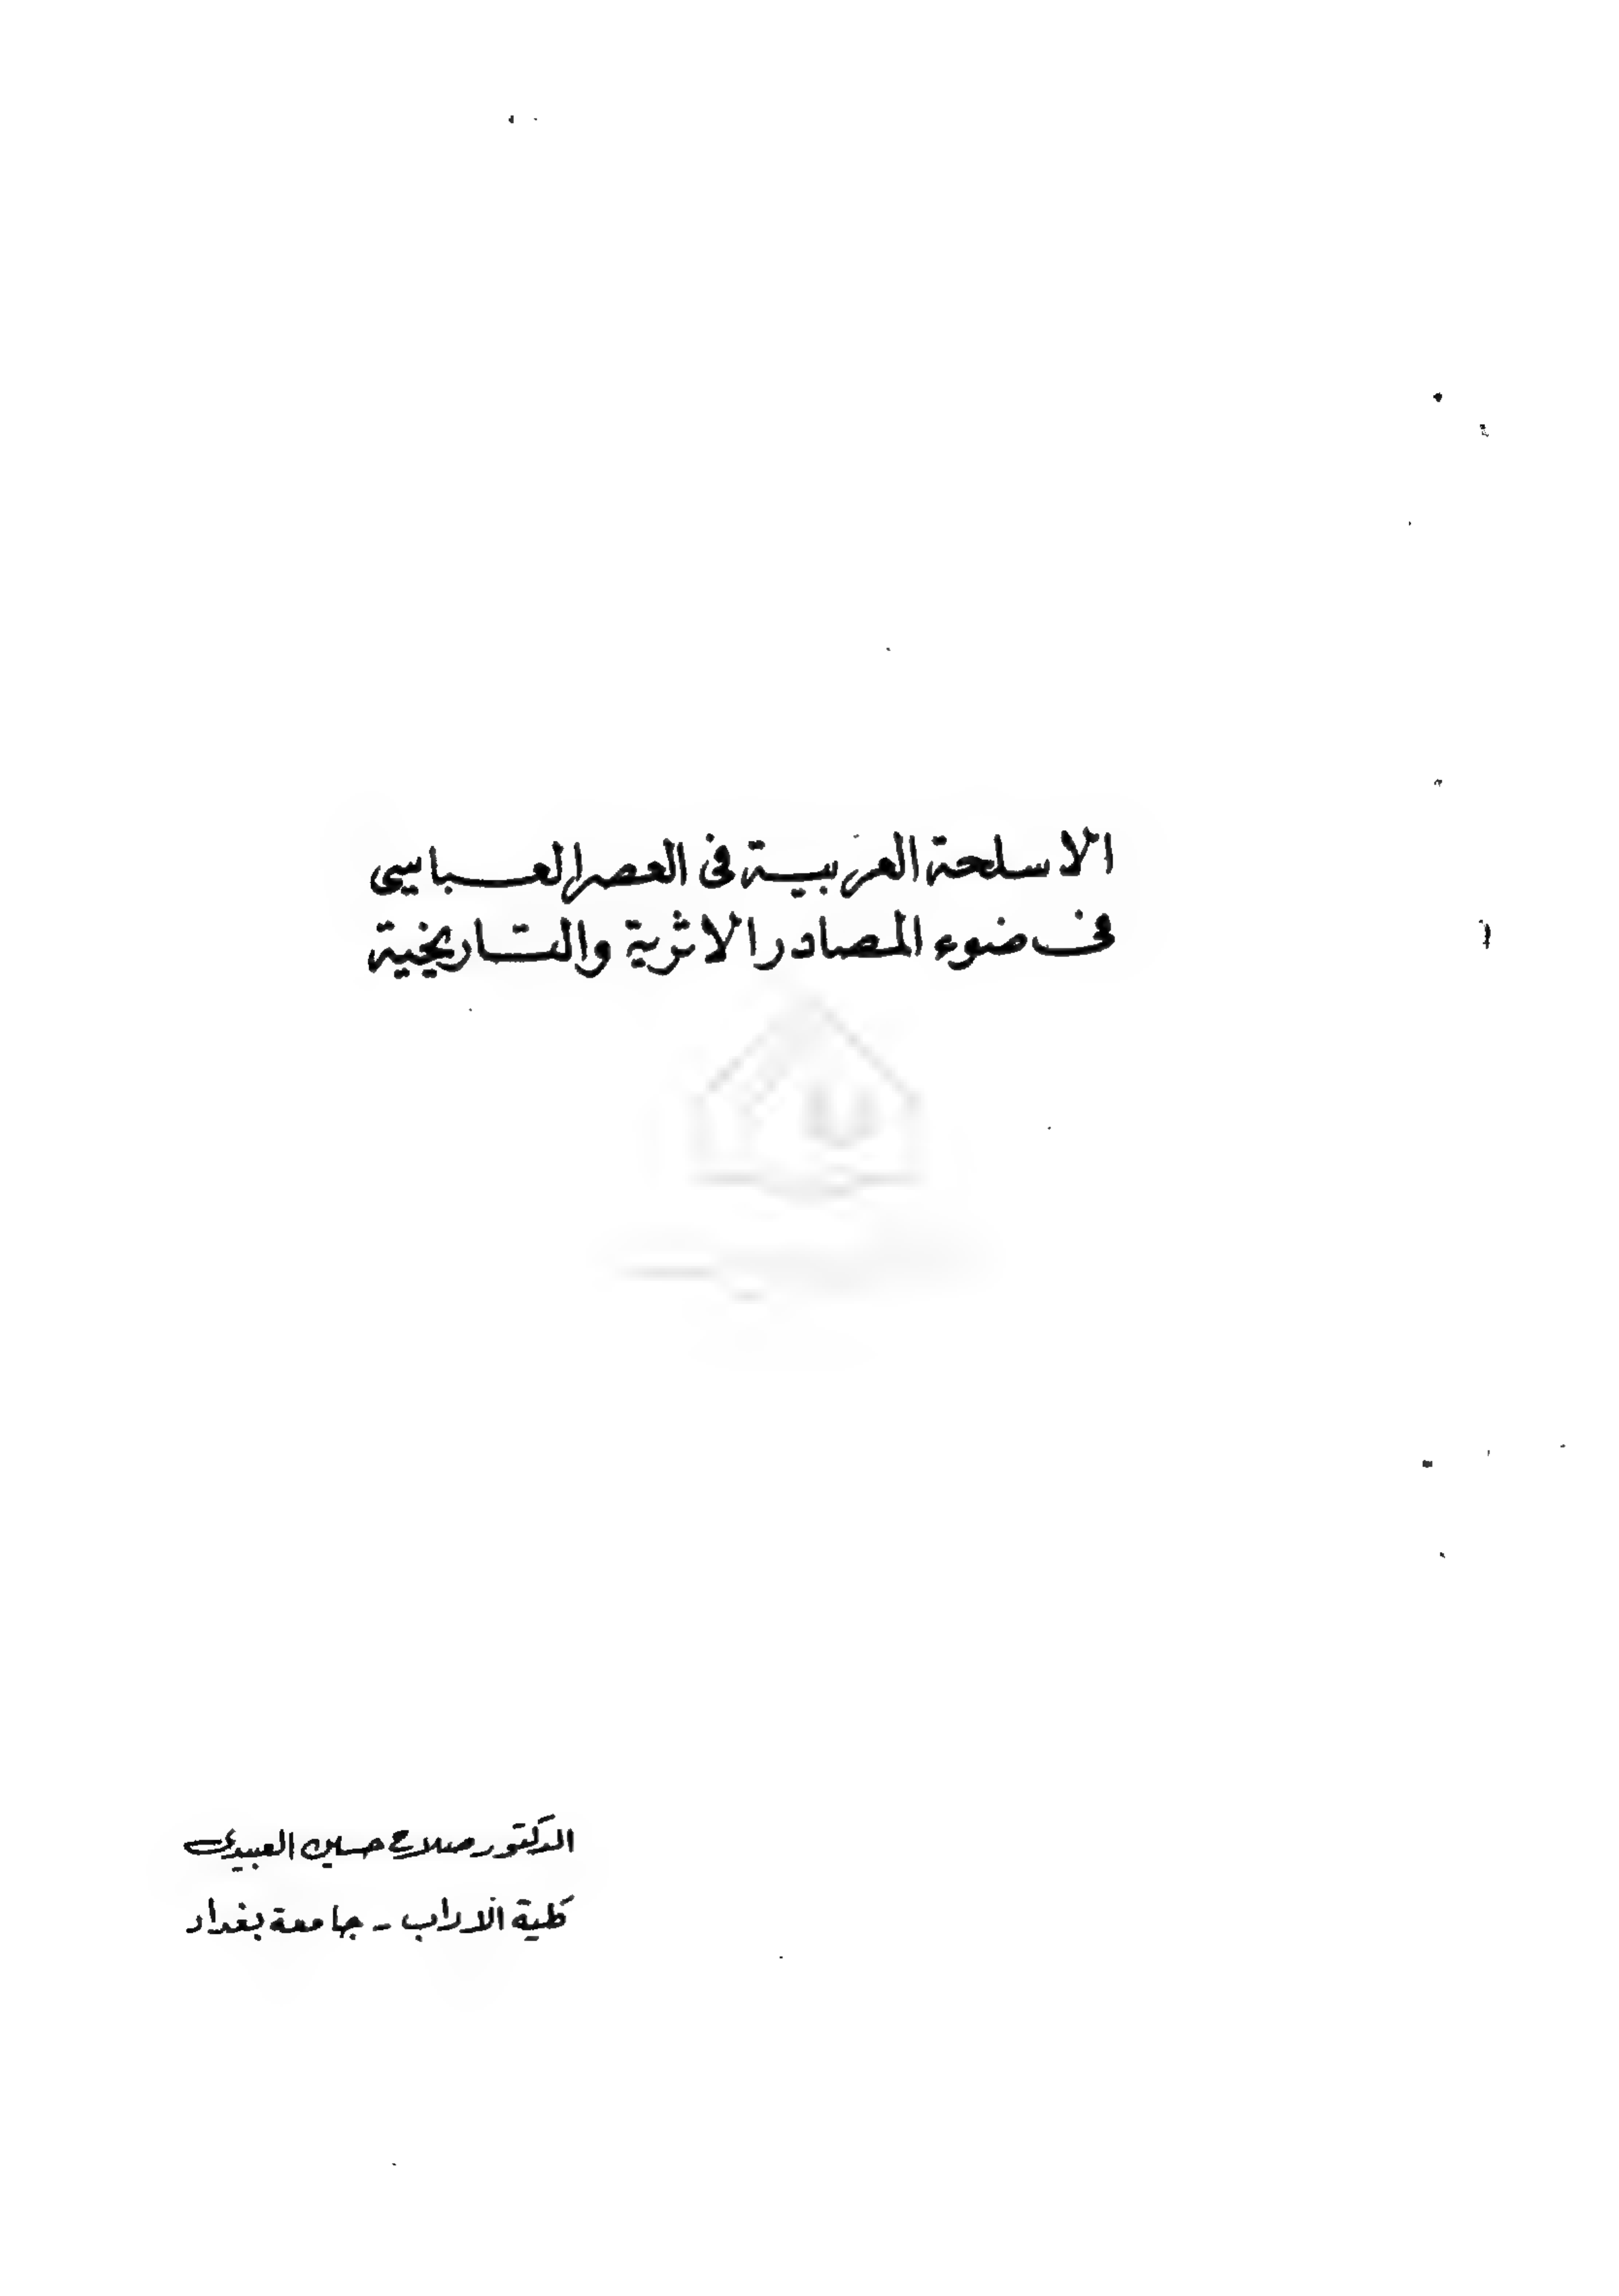 الاسلحة العربية في العصر العباسي
في ضوء المصادر الاثرية والتاريخية
الدكتور صلاح حسين العبيدي
كلية الاداب - جامعة بغداد